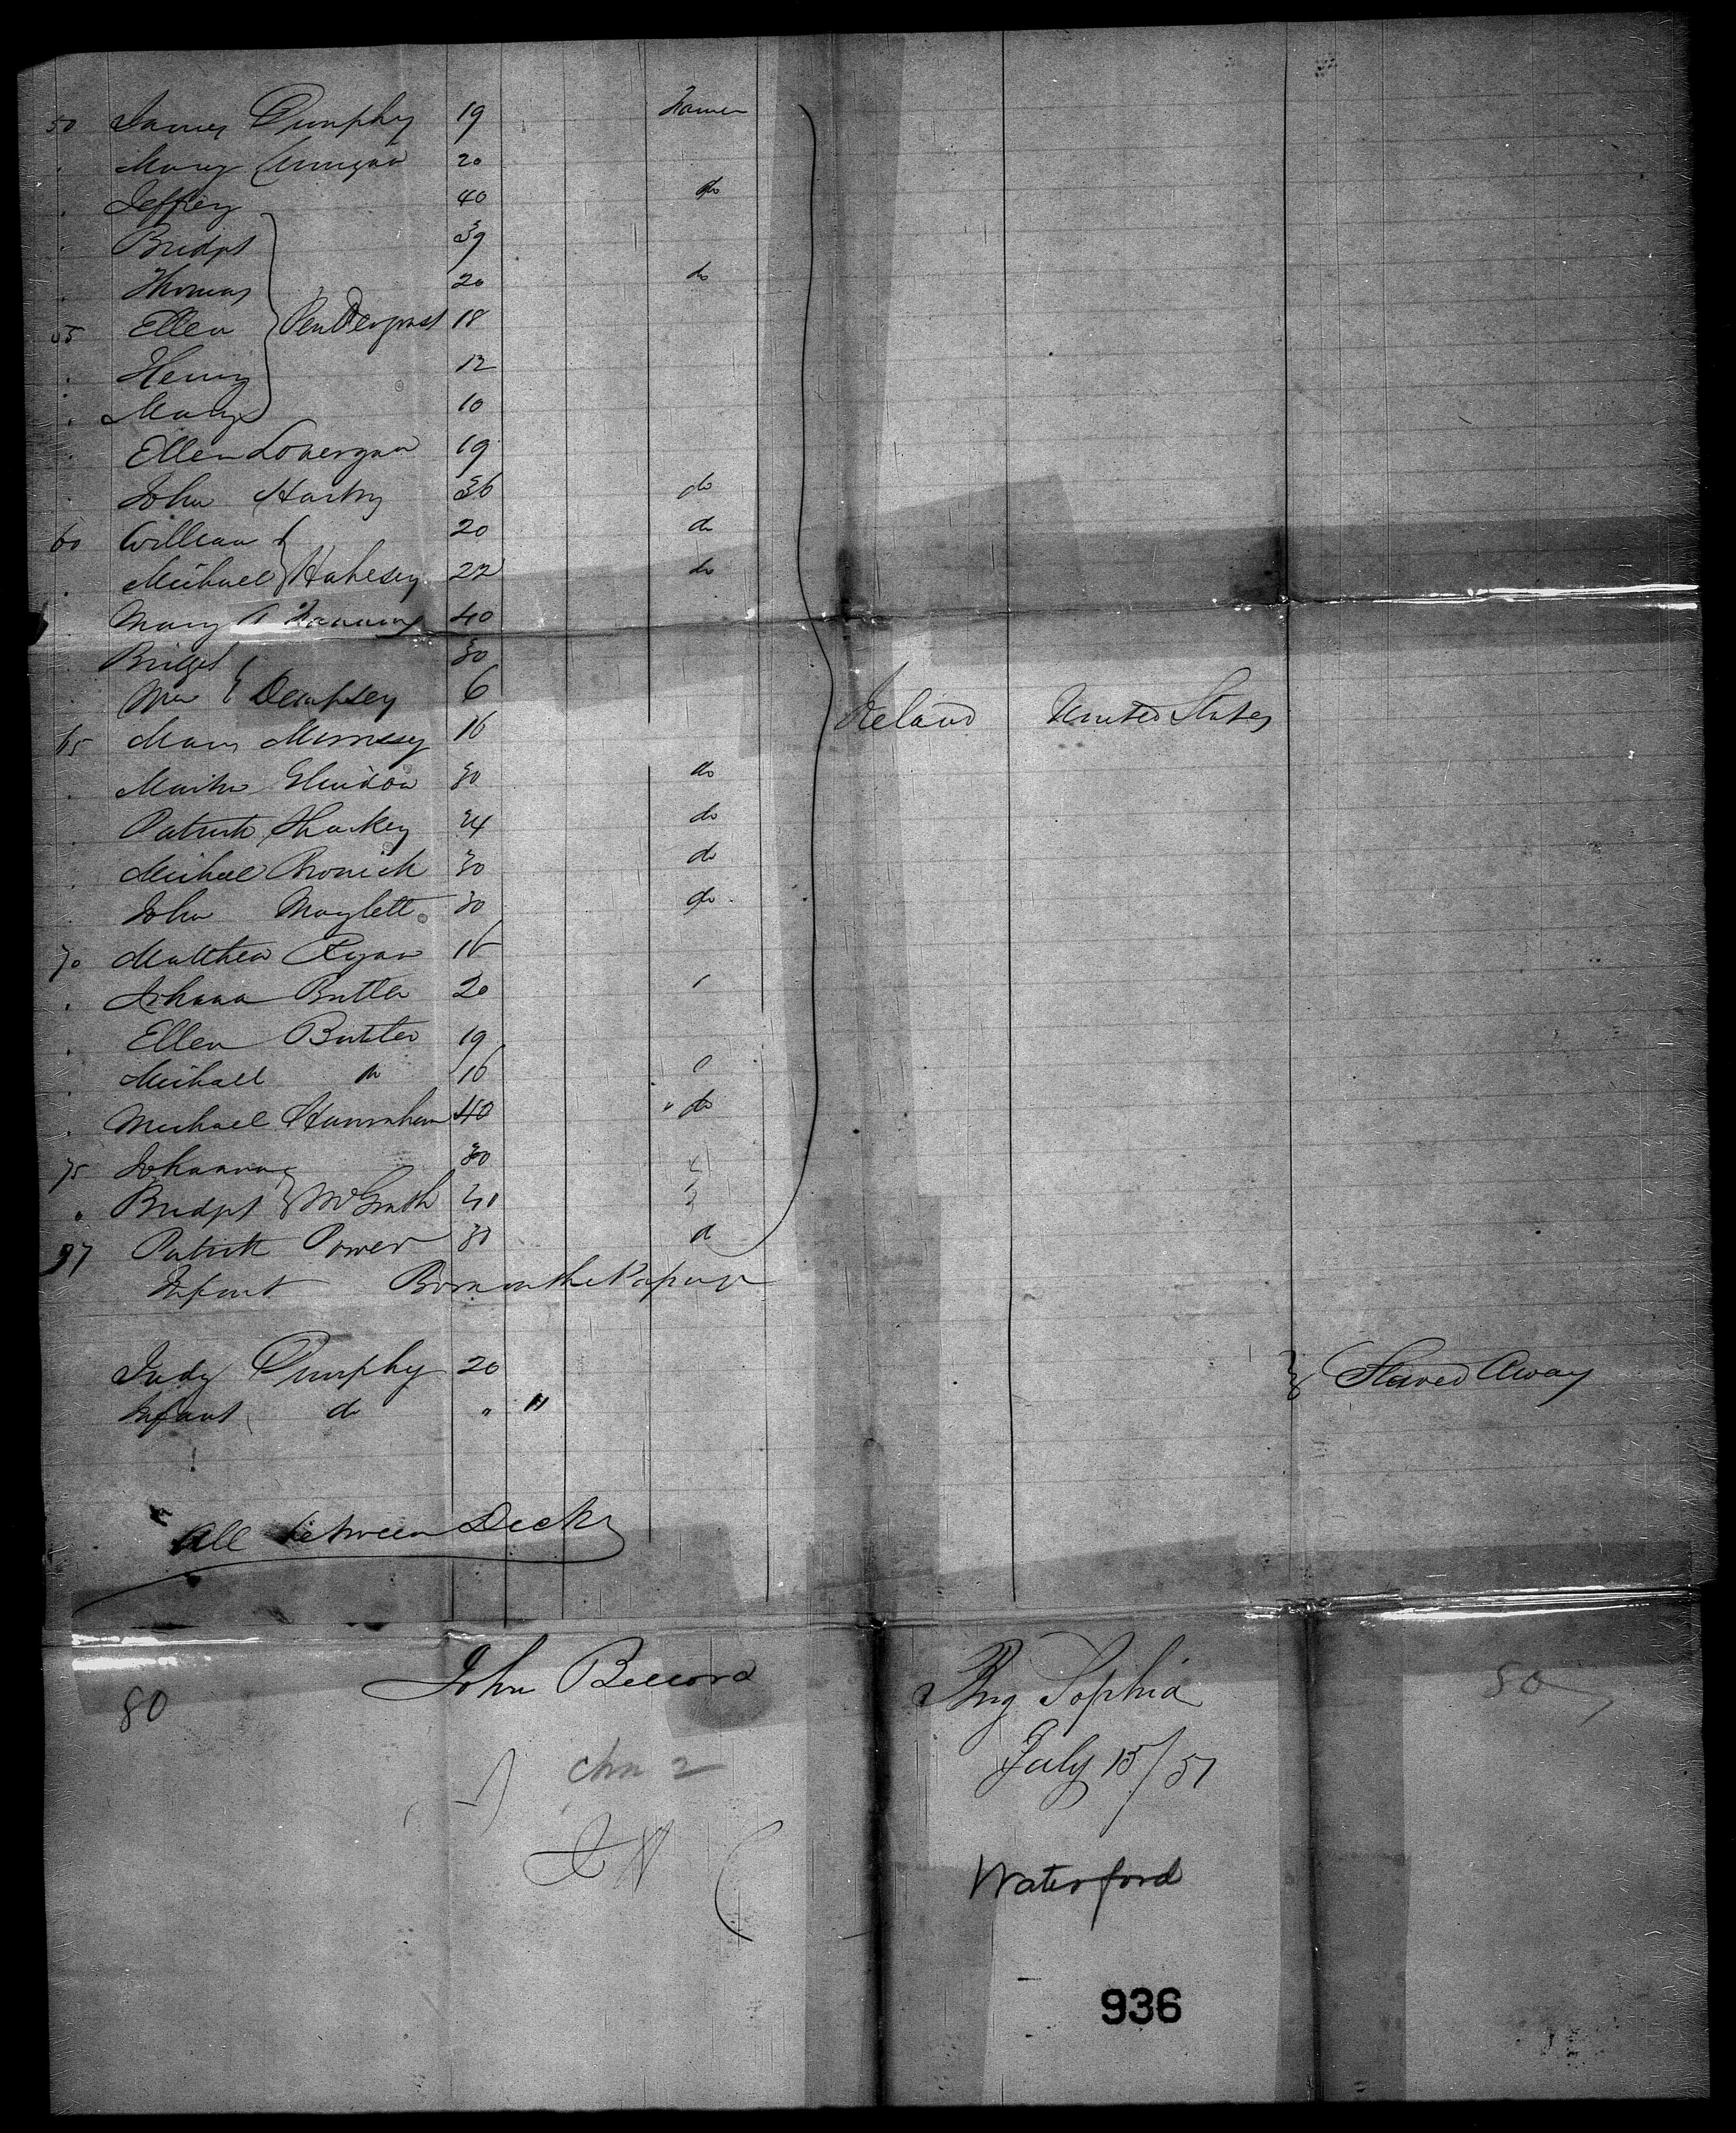 50 James Dunphy 19 Farmer
Mary 20
Jeffrey 40 do
Bridget 39
Thomas 20 do
55 Ellen Pendergrast 18
Henry 12
Mary 10
Ellen Lonergan 19
John Hartry 36 do
60 William 20 do
Michael Hahesey 22 do
Mary A Fanning 40
Bridget 30
Wm Dempsey 6
65 Mary 16
Ireland United States
Glendon 30 do
Patrick Sharkey 24 do
Michael 30 do
John Maylett 30 do
70 Matthew Ryan 16
Johana Butler 20
Ellen Butler 19
Michael do 16
Michael Hanrahan 40 " do
75 Johanna 30
Bridget McGrath
77 Patrick Power 30 d
Infant Born on the Passage
Judy Dunphy 20 Stowed Away
Infant do " "
All between Decks
John Record
80
Brig Sophia
50
July 15/51
chn 2
Waterford
936